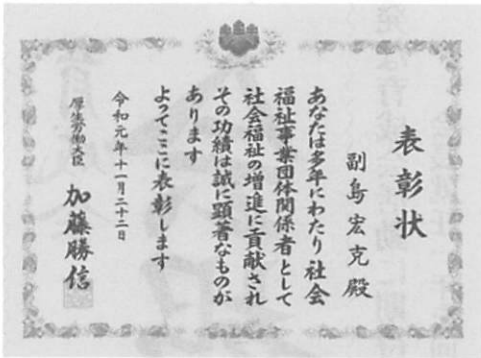 表彰状
副島宏克殿
あなたは多年にわたり社会
福祉事業団体関係者として
社会福祉の増進に貢献され
その功績は誠に顕著なものが
あります
よってここに表彰します
令和元年十一月二十二日
厚生労働大臣
加藤勝信